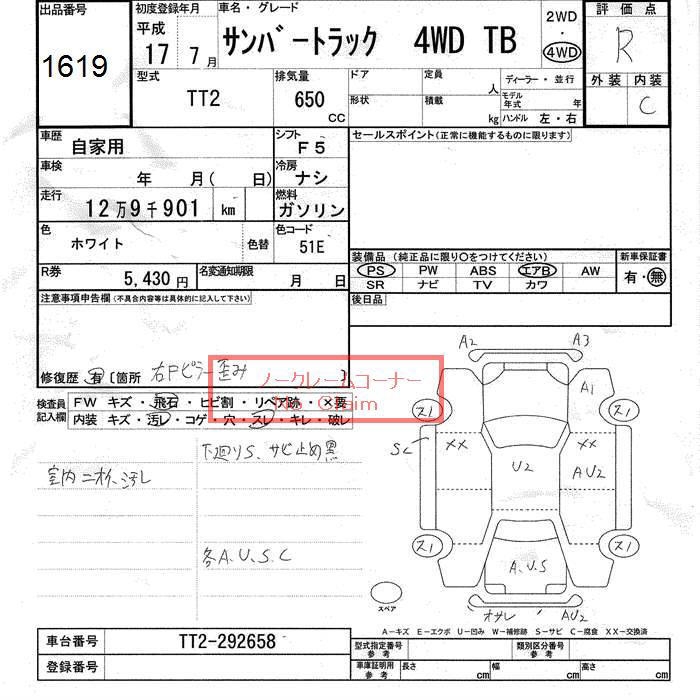 出品番号
1619
初度登録年月
平成
17 7月
車名・グレード
サンバートラック 4WD TB
2WD
・
4WD
評価点
R
型式
TT2
排気量
650
CC
ドア
定員
人
ディーラー・並行
形状
積載
kg
モデル
年式 年
ハンドル 左・右
外装 内装
C
車歴
自家用
シフト
F5
車検
年 月( 日)
冷房
ナシ
走行
12万9千901 km
燃料
ガソリン
色
ホワイト
色替
色コード
51E
R券
5,430円
名変通知期限
月 日
セールスポイント(正常に機能するものに限ります)
装備品(純正品に限り○をつけてください)
PS PW ABS エアB AW
SR ナビ TV カワ
新車保証書
有・無
後日品
注意事項申告欄(不具合内容等は具体的に記入して下さい)
修復歴 有〔箇所 右Fピラー歪み 〕
ノークレームコーナー
No Claim
検査員
記入欄
FW キズ・飛石・ヒビ割・リペア跡・×要
内装 キズ・汚レ・コゲ・穴・スレ・キレ・破レ
下廻りS、サビ止め黒
室内ニオイ、汚レ
各A、U、S、C
A2 A3
A1
スノ スノ
SC
XX XX
U2
AU2
スノ スノ
A、U、S
オサレ AU2
スペア
A―キズ E―エクボ U―凹み W―補修跡 S―サビ C―腐食 XX―交換済
車台番号 TT2-292658
登録番号
型式指定番号
参考
類別区分番号
参考
車庫証明用
参考
長さ cm 幅 cm 高さ cm